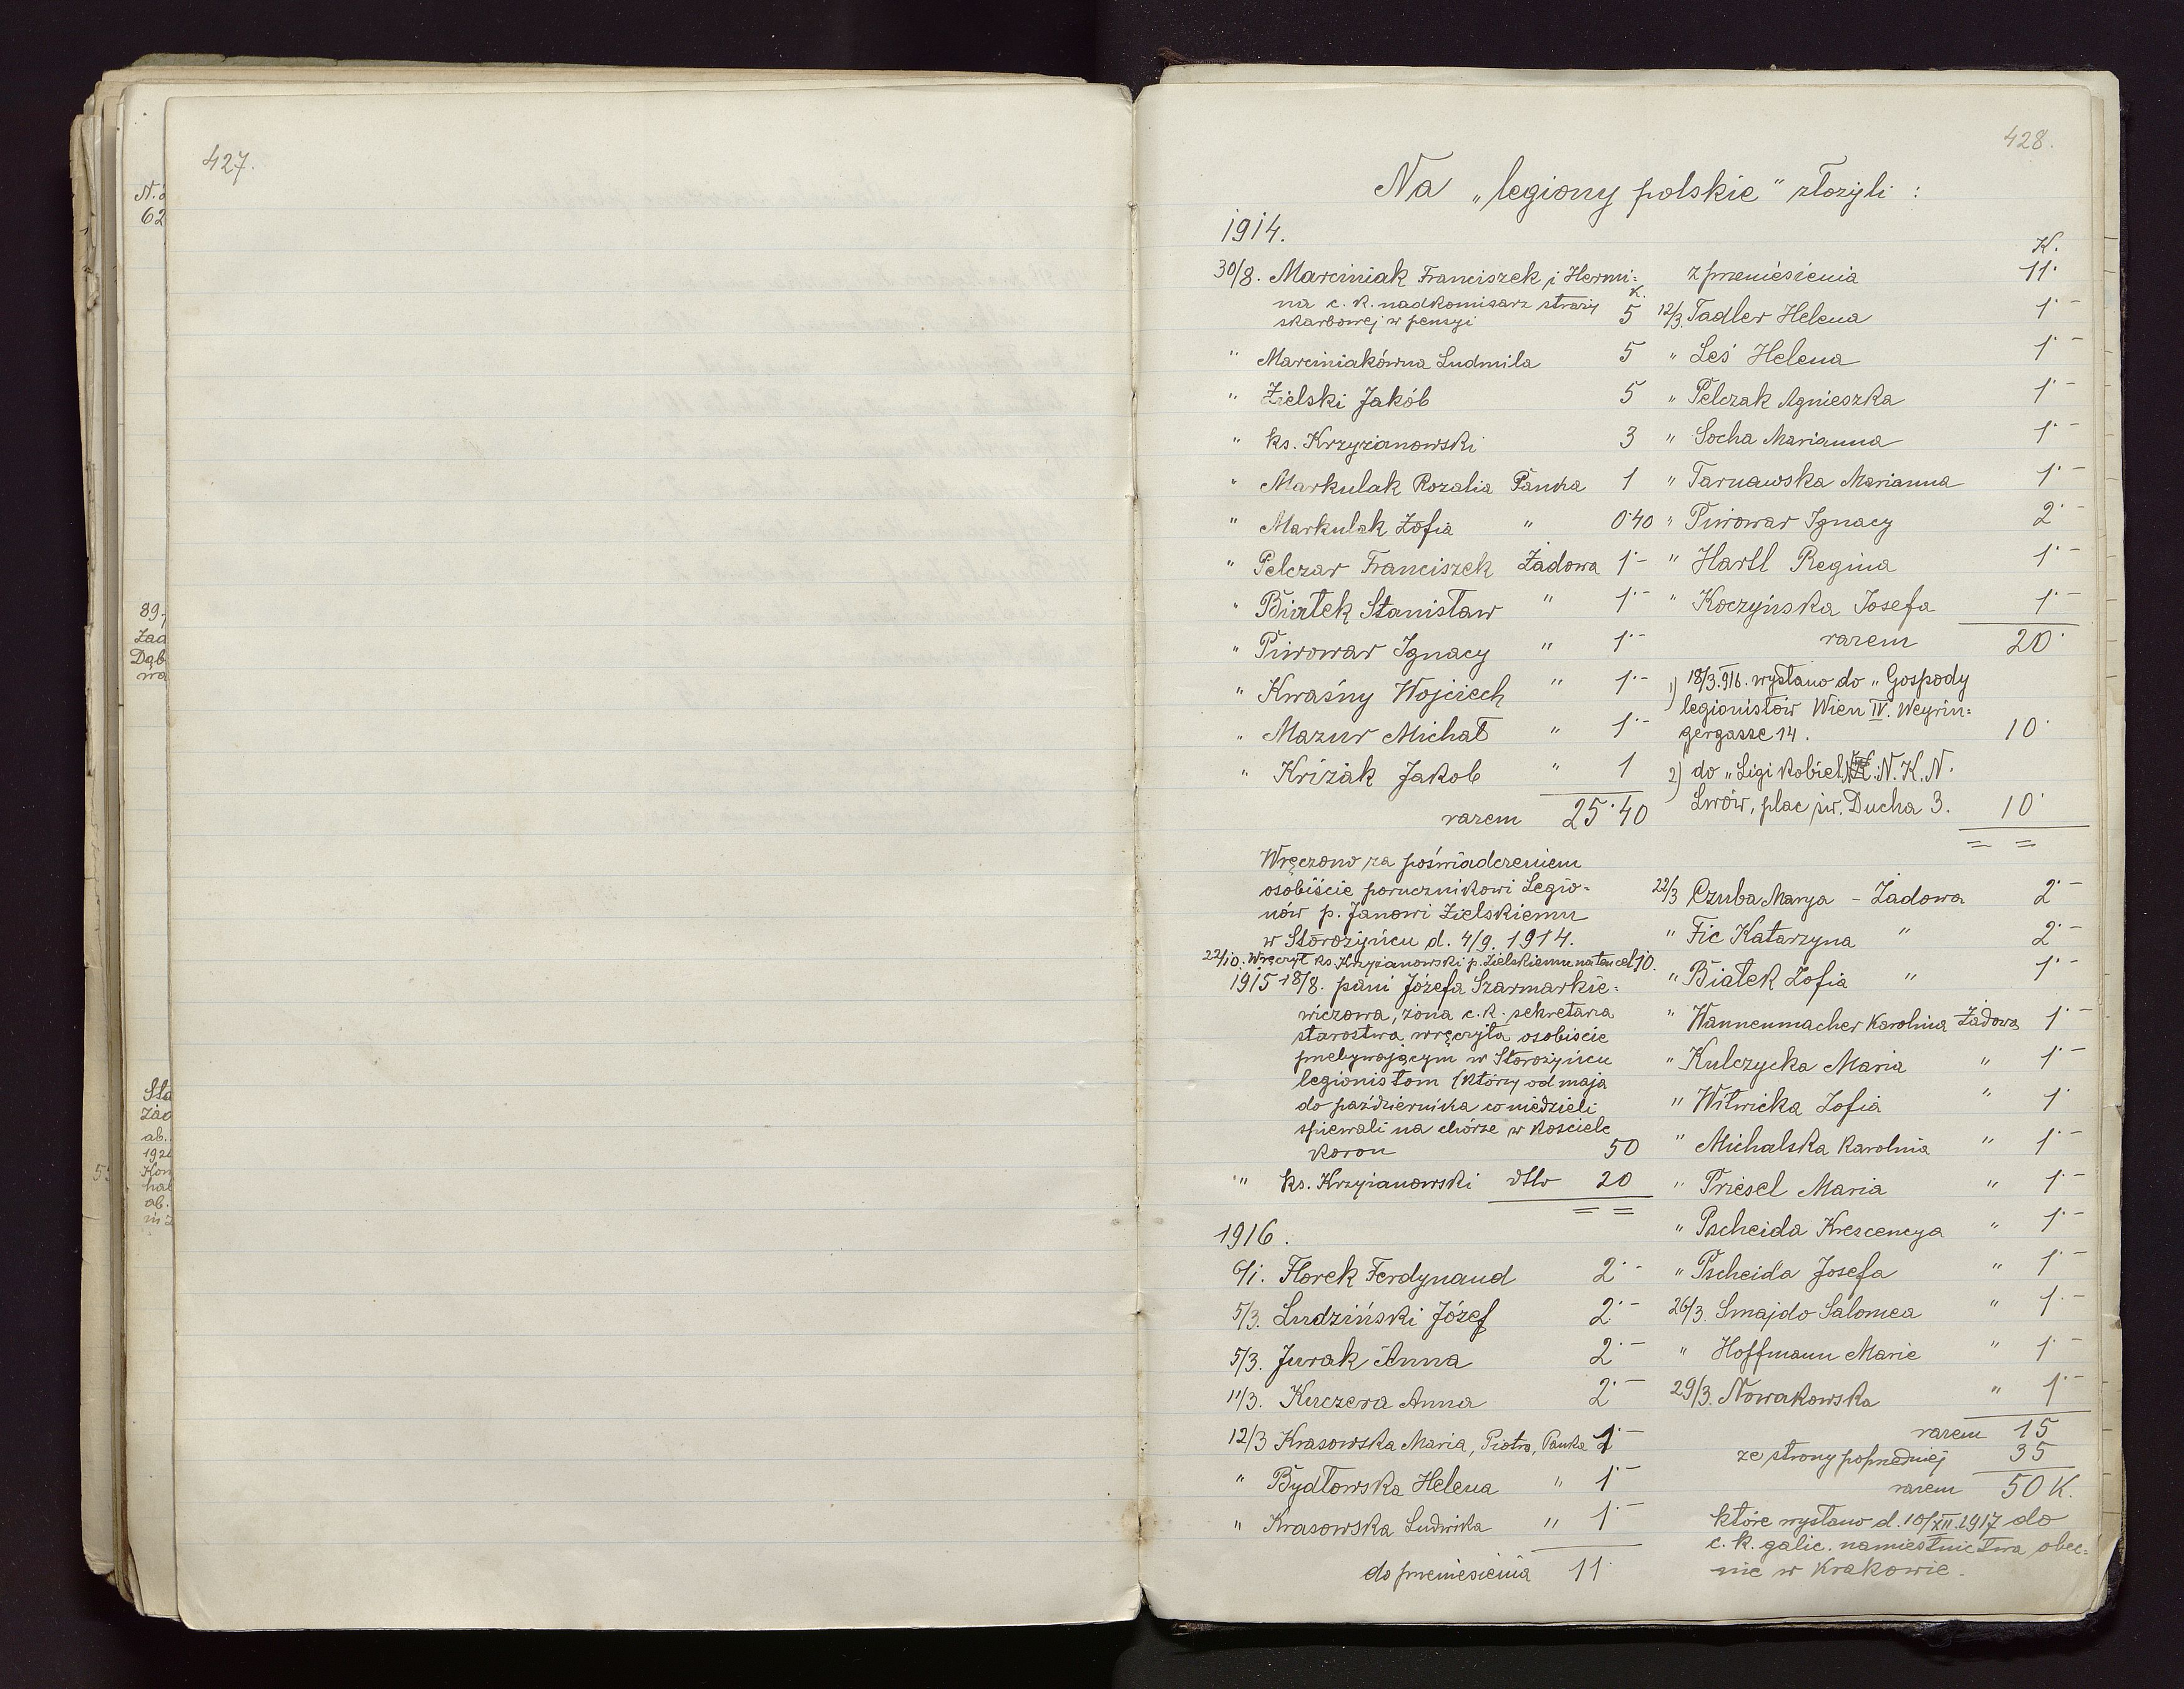 427.
N.
62
89
Żad
Dąb
wa
Sta
Żad
ab.
192
Kon
hal
ab.
428.
Na „legiony polskie" złożyli :
1914.
30/8. Marciniak Franciszek i Hermi=
na c. k. nadkomisarz straży K.
skarbowej w pensyi 5
" Marciniakówna Ludmila 5
" Zielski Jakób 5
" ks. Krzyżanowski 3
" Markulak Rozalia Panka 1
" Markulak Zofia " 0·40
" Pelczar Franciszek Żadowa 1·-
" Białek Stanisław " 1·-
" Piwowar Ignacy " 1·-
" Kwaśny Wojciech " 1·-
" Mazur Michał " 1·-
" Kriżak Jakob " 1
razem 25·40
Wręczono za poświadczeniem
osobiście porucznikowi Legio=
nów p. Janowi Zielskiemu
w Storożyńcu d. 4/9. 1914.
22/10. Wręczył ks. Krzyżanowski p. Zielskiemu na ten cel 10.
1915 18/8. pani Józefa Szarmarkie=
wiczowa, żona c. k. sekretarza
starostwa wręczyła osobiście
przebywającym w Storożyńcu
legionistom (którzy od maja
do października co niedzieli
śpiewali na chórze w kościele
koron 50
" ks. Krzyżanowski dtto 20
1916.
6/1. Florek Ferdynand 2·-
5/3. Ludziński Józef 2·-
5/3. Jurak Anna 2·-
11/3. Kuczera Anna 2·-
12/3 Krasowska Maria, Piotra, Panka 1·-
" Bydłowska Helena " 1·-
" Krasowska Ludwika " 1·-
do przeniesienia 11·
K.
z przeniesienia 11·
12/3. Tadler Helena 1·-
" Leś Helena 1·-
" Pelczak Agnieszka 1·-
" Socha Marianna 1·-
" Tarnawska Marianna 1·-
" Piwowar Ignacy 2·-
" Hartl Regina 1·-
" Koczyńska Josefa 1·-
razem 20·
1) 18/3.916. wysłano do „Gospody
legionistów Wien IV. Weyrin=
gergasse 14. 10·
2) do „Ligi kobiet N. K. N.
Lwów, plac św. Ducha 3. 10·
22/3 Czuba Marya - Żadowa 2·-
" Fic Katarzyna " 2·-
" Białek Zofia " 1·-
" Wannenmacher Karolina Żadowa 1·-
" Kulczycka Maria " 1·-
" Witwicka Zofia " 1·
" Michalska Karolina " 1·-
" Priesel Maria " 1·-
" Pscheida Krescencya " 1·-
" Pscheida Josefa " 1·-
26/3. Smajdo Salomea " 1·-
" Hoffmann Marie " 1·-
29/3. Nowakowska " 1·-
razem 15
ze strony poprzedniej 35
razem 50 K.
które wysłano d. 10/XII.1917 do
c. k. galic. namiestnictwa obec=
nie w Krakowie.